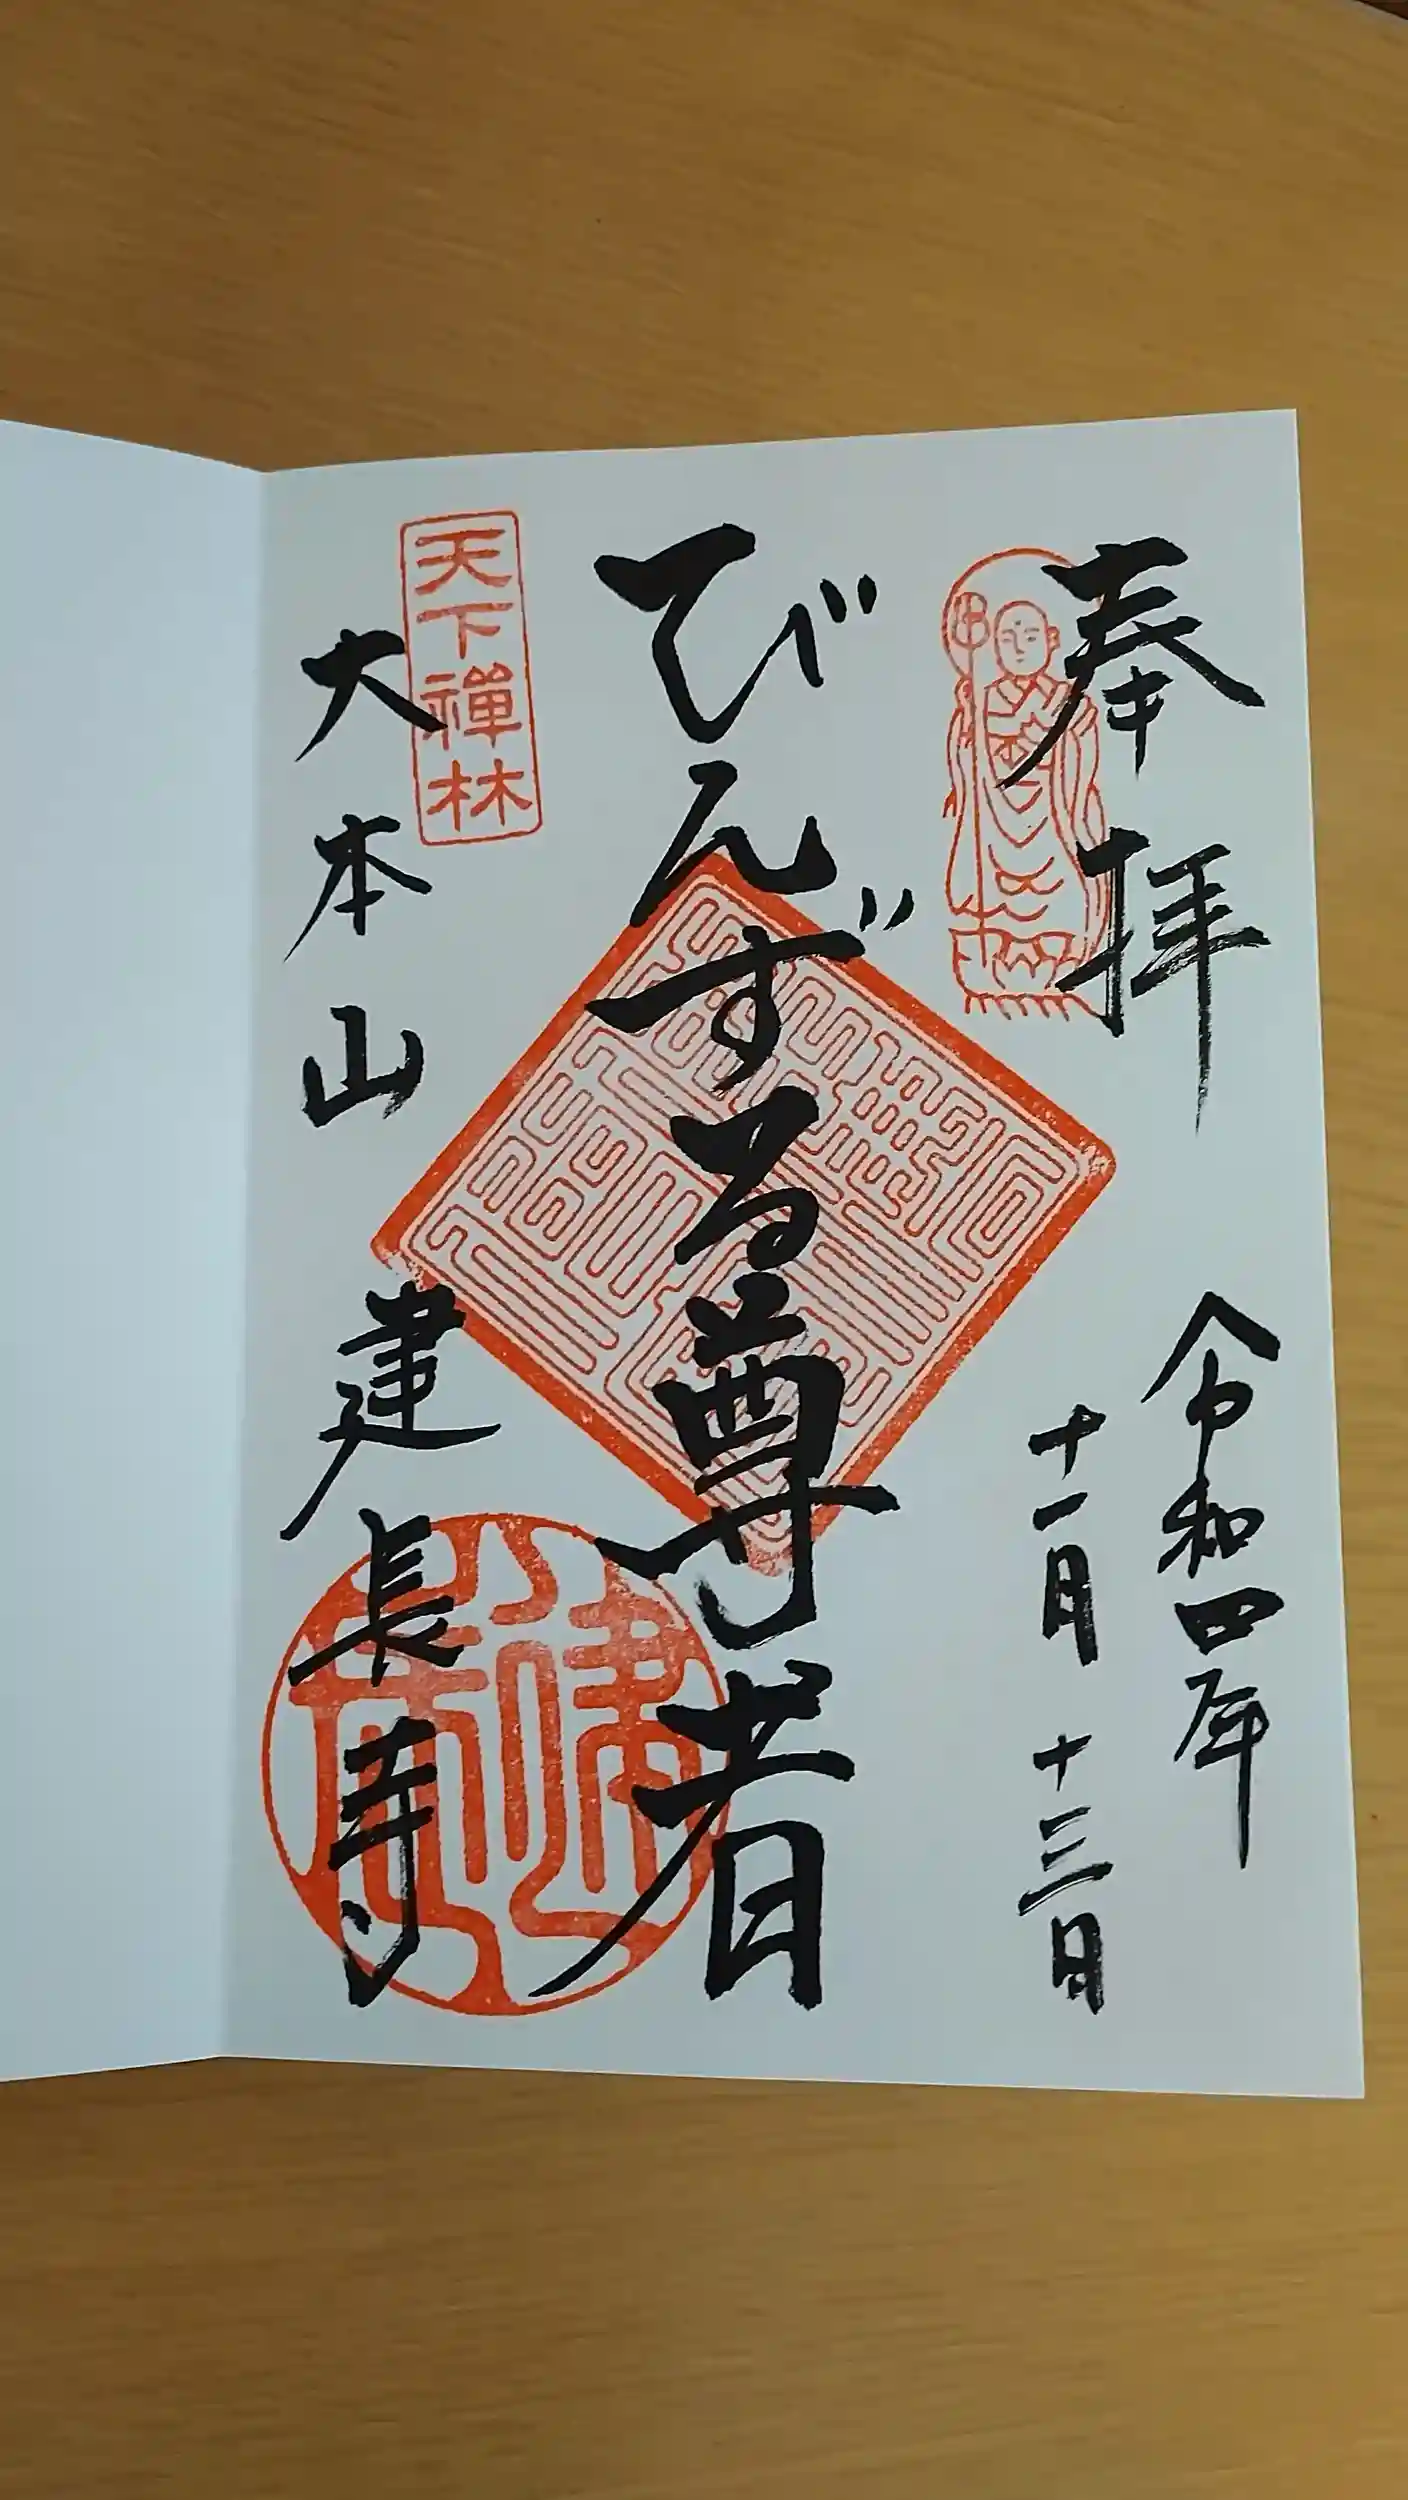 奉拝
令和四年
十一月十三日
びんずる尊者
天下禅林
大本山 建長寺